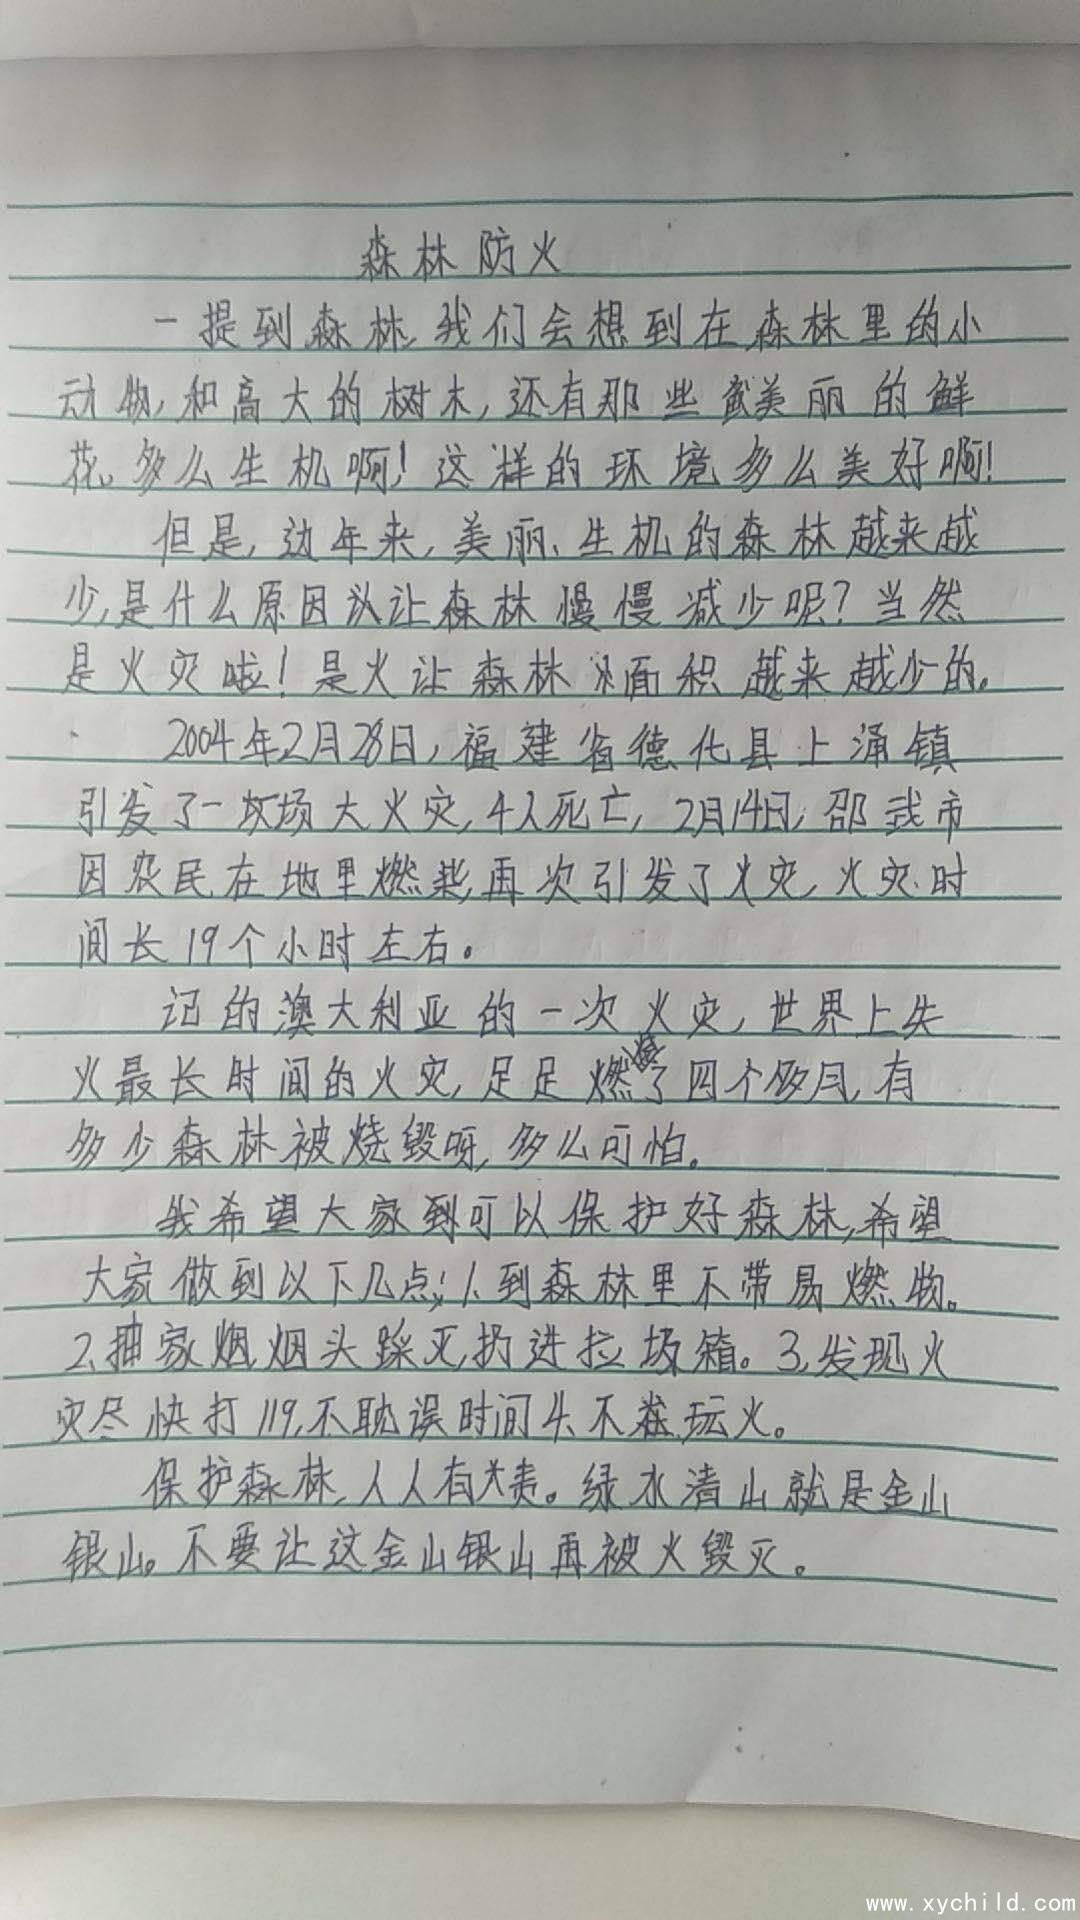 森林防火
一提到森林,我们会想到在森林里的小
动物,和高大的树木,还有那些美丽的鲜
花。多么生机啊!这样的环境多么美好啊!
但是,边年来,美丽、生机的森林越来越
少,是什么原因让森林慢慢减少呢?当然
是火灾啦!是火让森林面积越来越少的。
2004年2月28日,福建省德化县上涌镇
引发了一场大火灾,4人死亡,2月14日,邵武市
因农民在地里燃柴,再次引发了火灾,火灾时
间长19个小时左右。
记的澳大利亚的一次火灾,世界上失
火最长时间的火灾,足足燃了四个多月,有
多少森林被烧毁呀,多么可怕。
我希望大家到可以保护好森林,希望
大家做到以下几点:1.到森林里不带易燃物。
2.抽家烟,烟头踩灭,扔进垃圾箱。3.发现火
灾尽快打119,不耽误时间4.不在玩火。
保护森林,人人有责。绿水清山就是金山
银山。不要让这金山银山再被火毁灭。
www.xychild.com